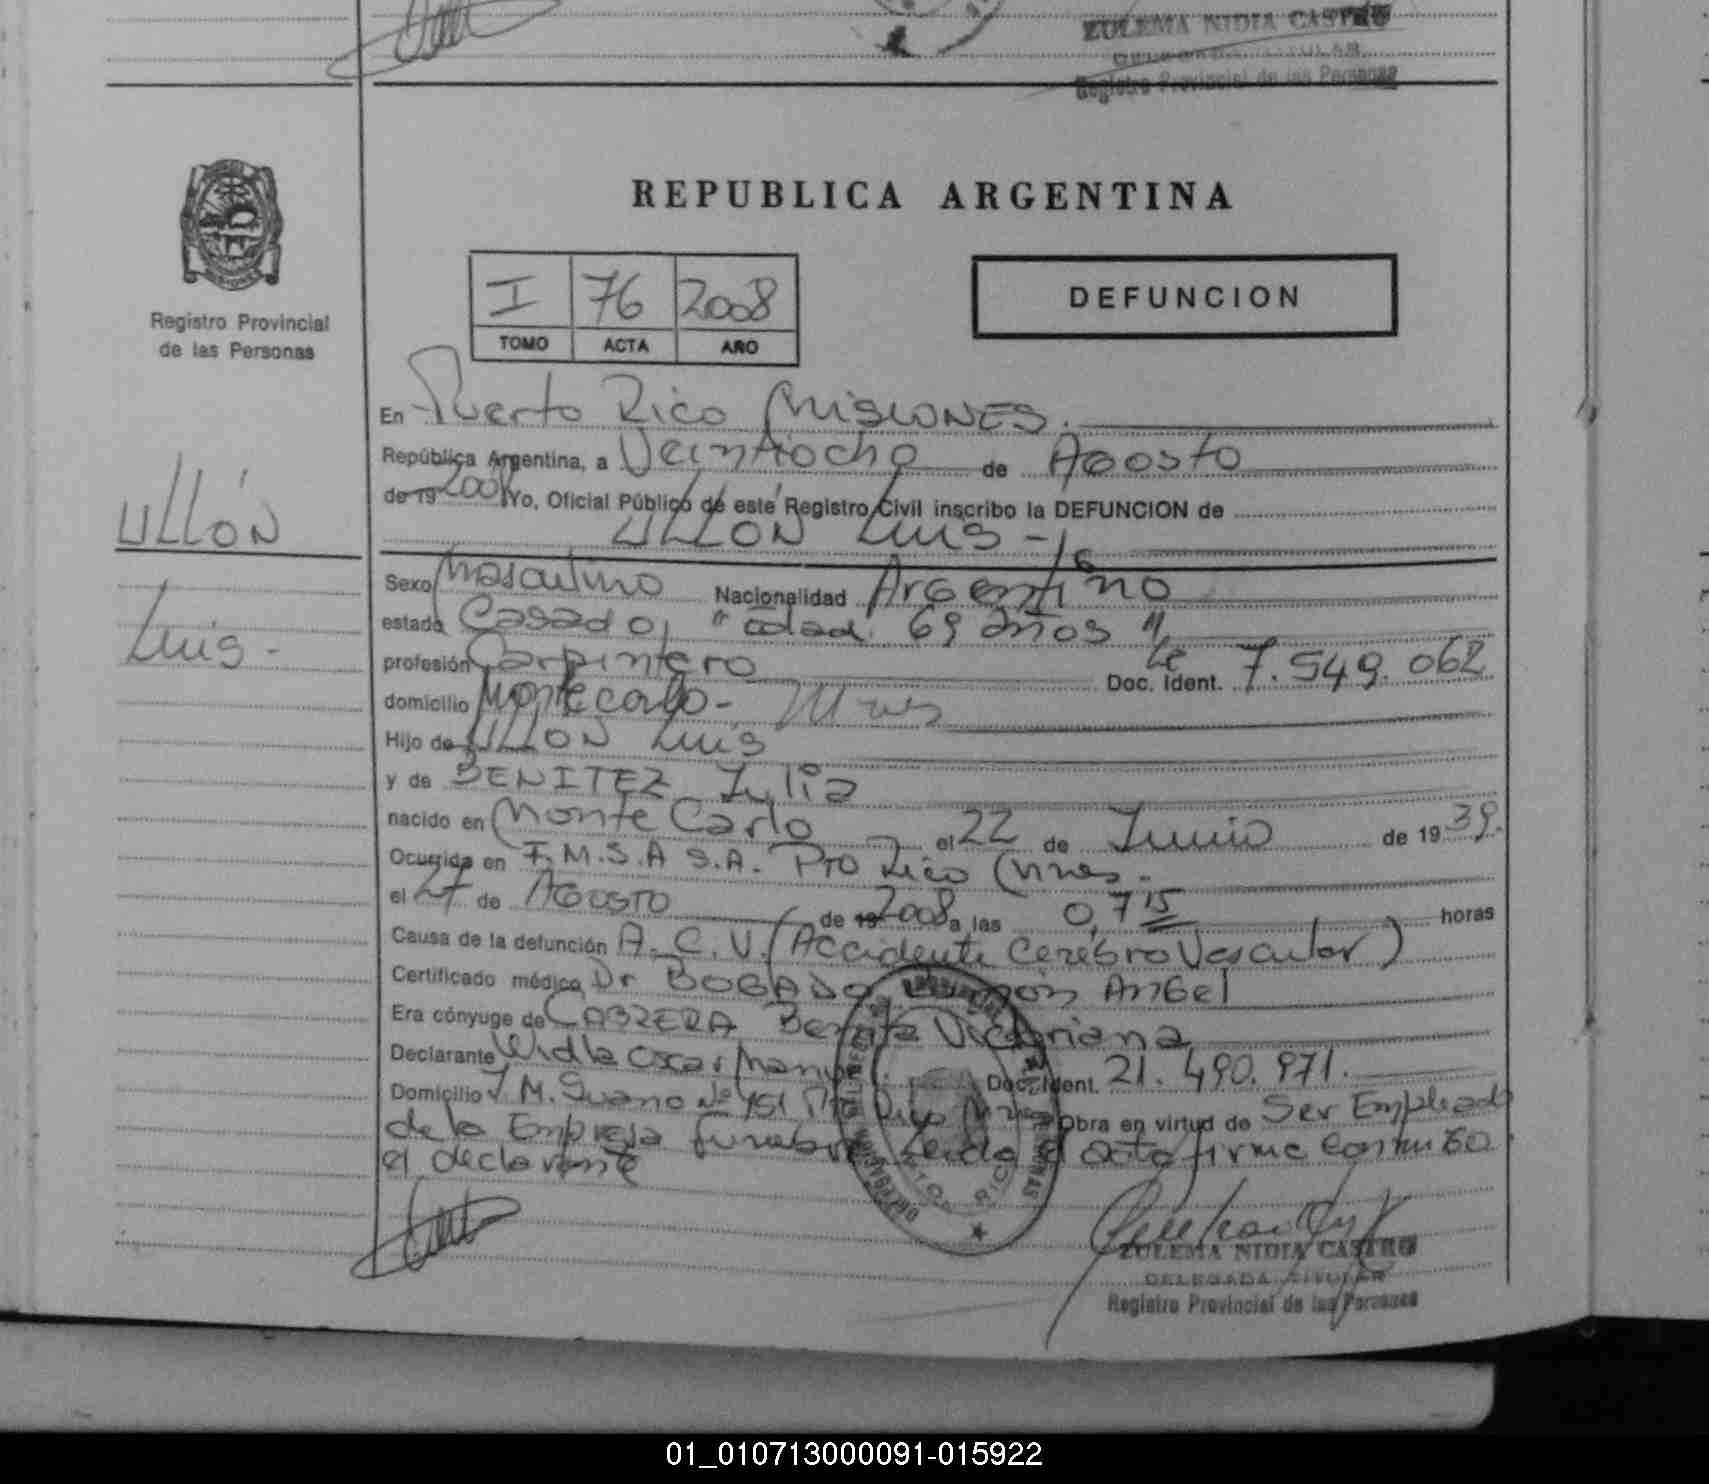 ZULEMA NIDIA CASTRO
DELEGADA TITULAR
Registro Provincial de las Personas
REPUBLICA ARGENTINA
I 76 2008
TOMO ACTA AÑO
DEFUNCION
Registro Provincial
de las Personas
ULLÓN
Luis -
En Puerto Rico Misiones.
República Argentina, a Veintiocho de Agosto
de 19 2008 Yo, Oficial Público de este Registro Civil inscribo la DEFUNCION de
ULLÓN Luis -
Sexo Masculino Nacionalidad Argentino
estado Casado, "edad 69 años"
profesión Carpintero Doc. Ident. Le 7.549.062
domicilio Montecarlo - Mnes
Hijo de ULLON Luis
y de BENITEZ Julia
nacido en Monte Carlo el 22 de Junio de 19 39.
Ocurrida en F.M.S.A S.A. Pto Rico Mnes.
el 27 de Agosto de 19 2008 a las 0,7 15 horas
Causa de la defunción A.C.V. (Accidente Cerebro Vascular)
Certificado médico Dr BOGADO Ramón Angel
Era cónyuge de CABRERA Benita Victoriana
Declarante Widla Oscar Doc. Ident. 21.490.971.
Domicilio J. M. Nº 451 Pto Rico Mnes Obra en virtud de Ser Empleado
de la Empresa funebre Leída el acta firma conmigo
el declarante
PTO. RICO
ZULEMA NIDIA CASTRO
DELEGADA TITULAR
Registro Provincial de las Personas
01_010713000091-015922